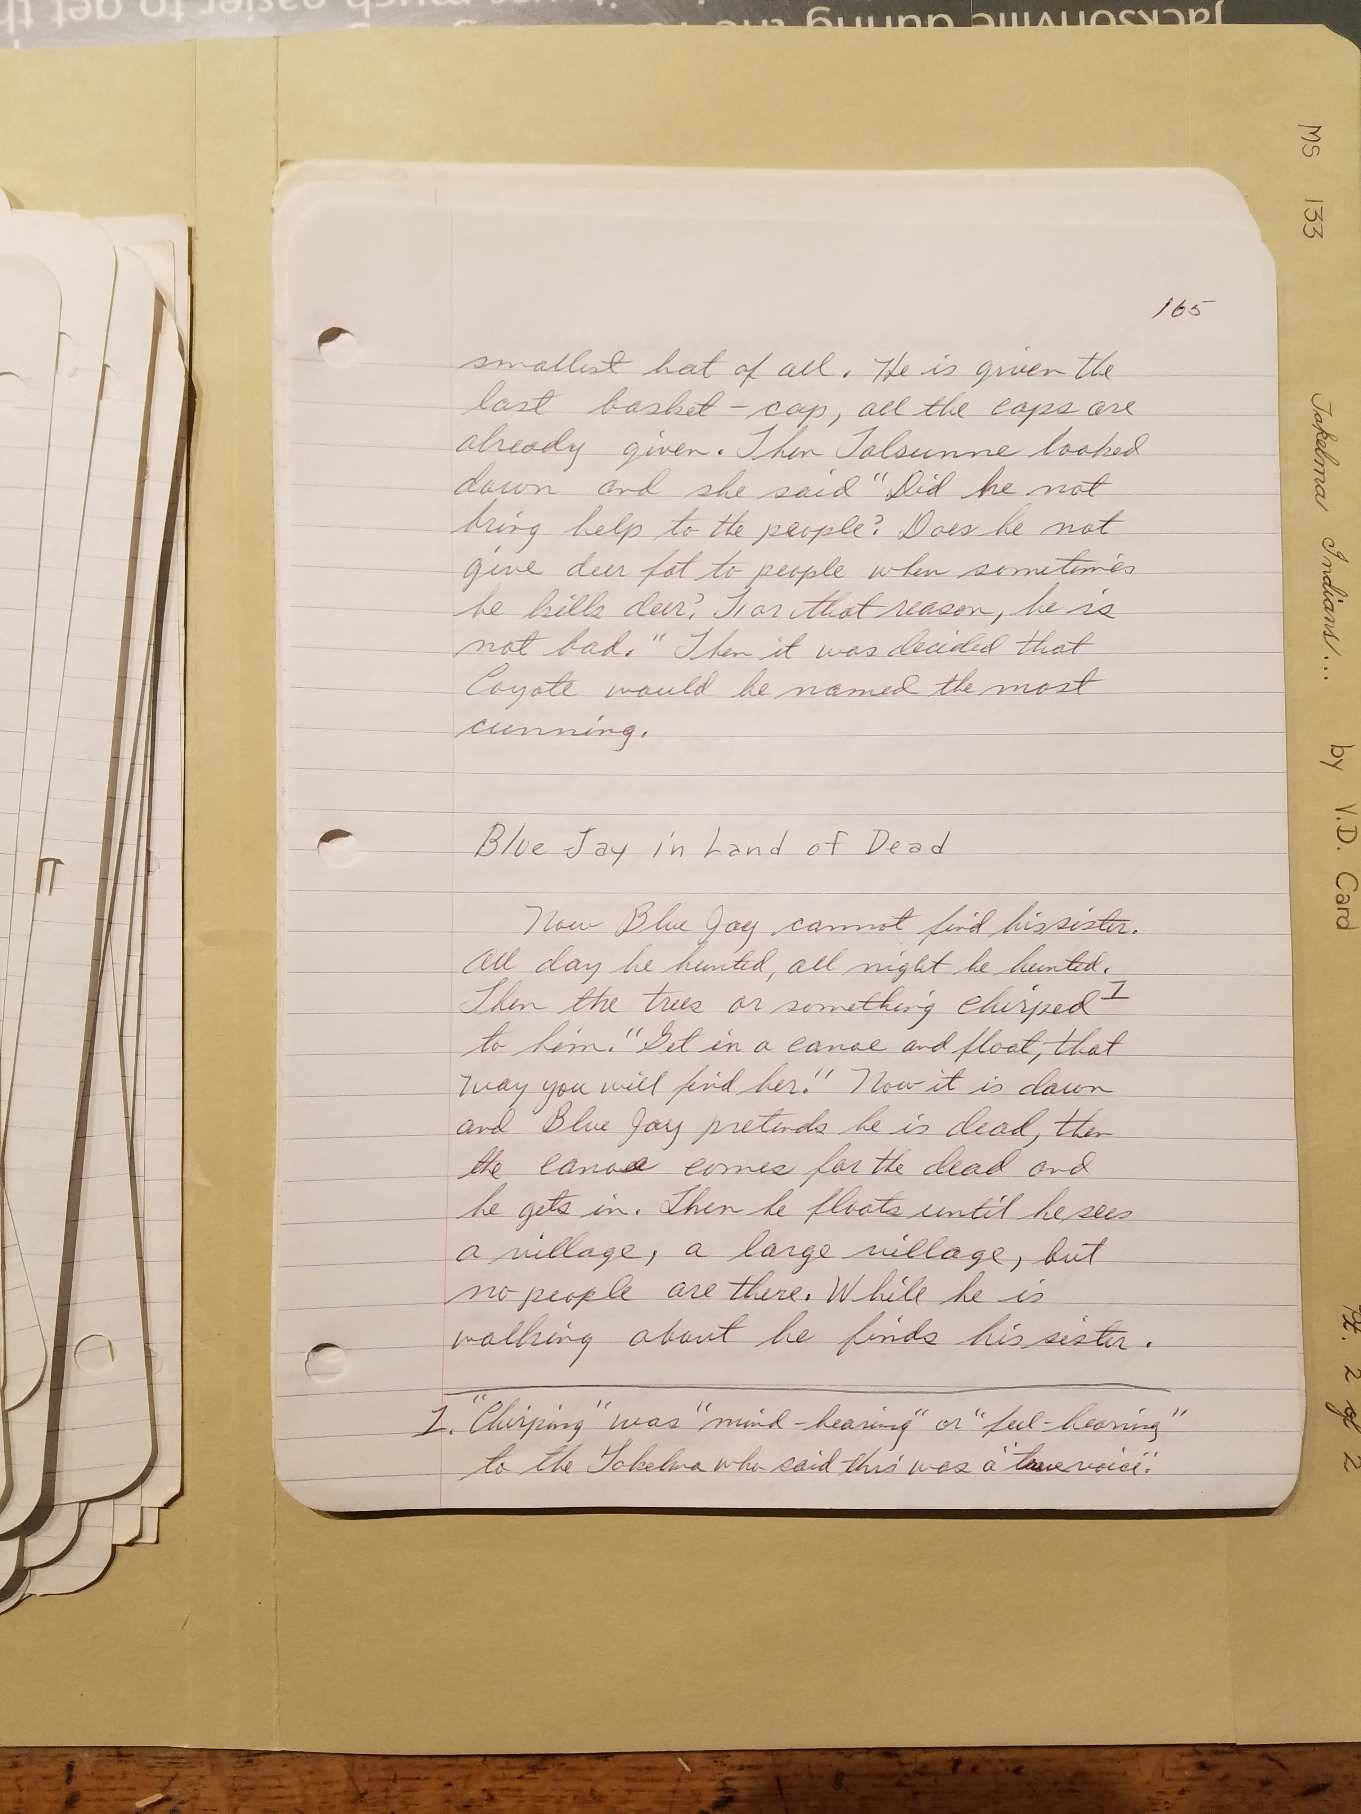 165
smallest hat of all. He is given the
last basket-cap, all the caps are
already given. Then Talsunne looked
down and she said "Did he not
bring help to the people? Does he not
give deer fat to people when sometimes
he kills deer? For that reason, he is
not bad." Then it was decided that
Coyote would be named the most
cunning.
Blue Jay in Land of Dead
Now Blue Jay cannot find his sister.
All day he hunted, all night he hunted.
Then the trees or something chirped 1
to him. "Get in a canoe and float, that
way you will find her." Now it is dawn
and Blue Jay pretends he is dead, then
the canoe comes for the dead and
he gets in. Then he floats until he sees
a village, a large village, but
no people are there. While he is
walking about he finds his sister.
1. "Chirping" was "mind-hearing" or "feel-hearing"
to the Takelma who said this was a "true voice."
MS 133 Takelma Indians... by V.D. Card Pt. 2 of 2
Jacksonville during the
much easier to get th